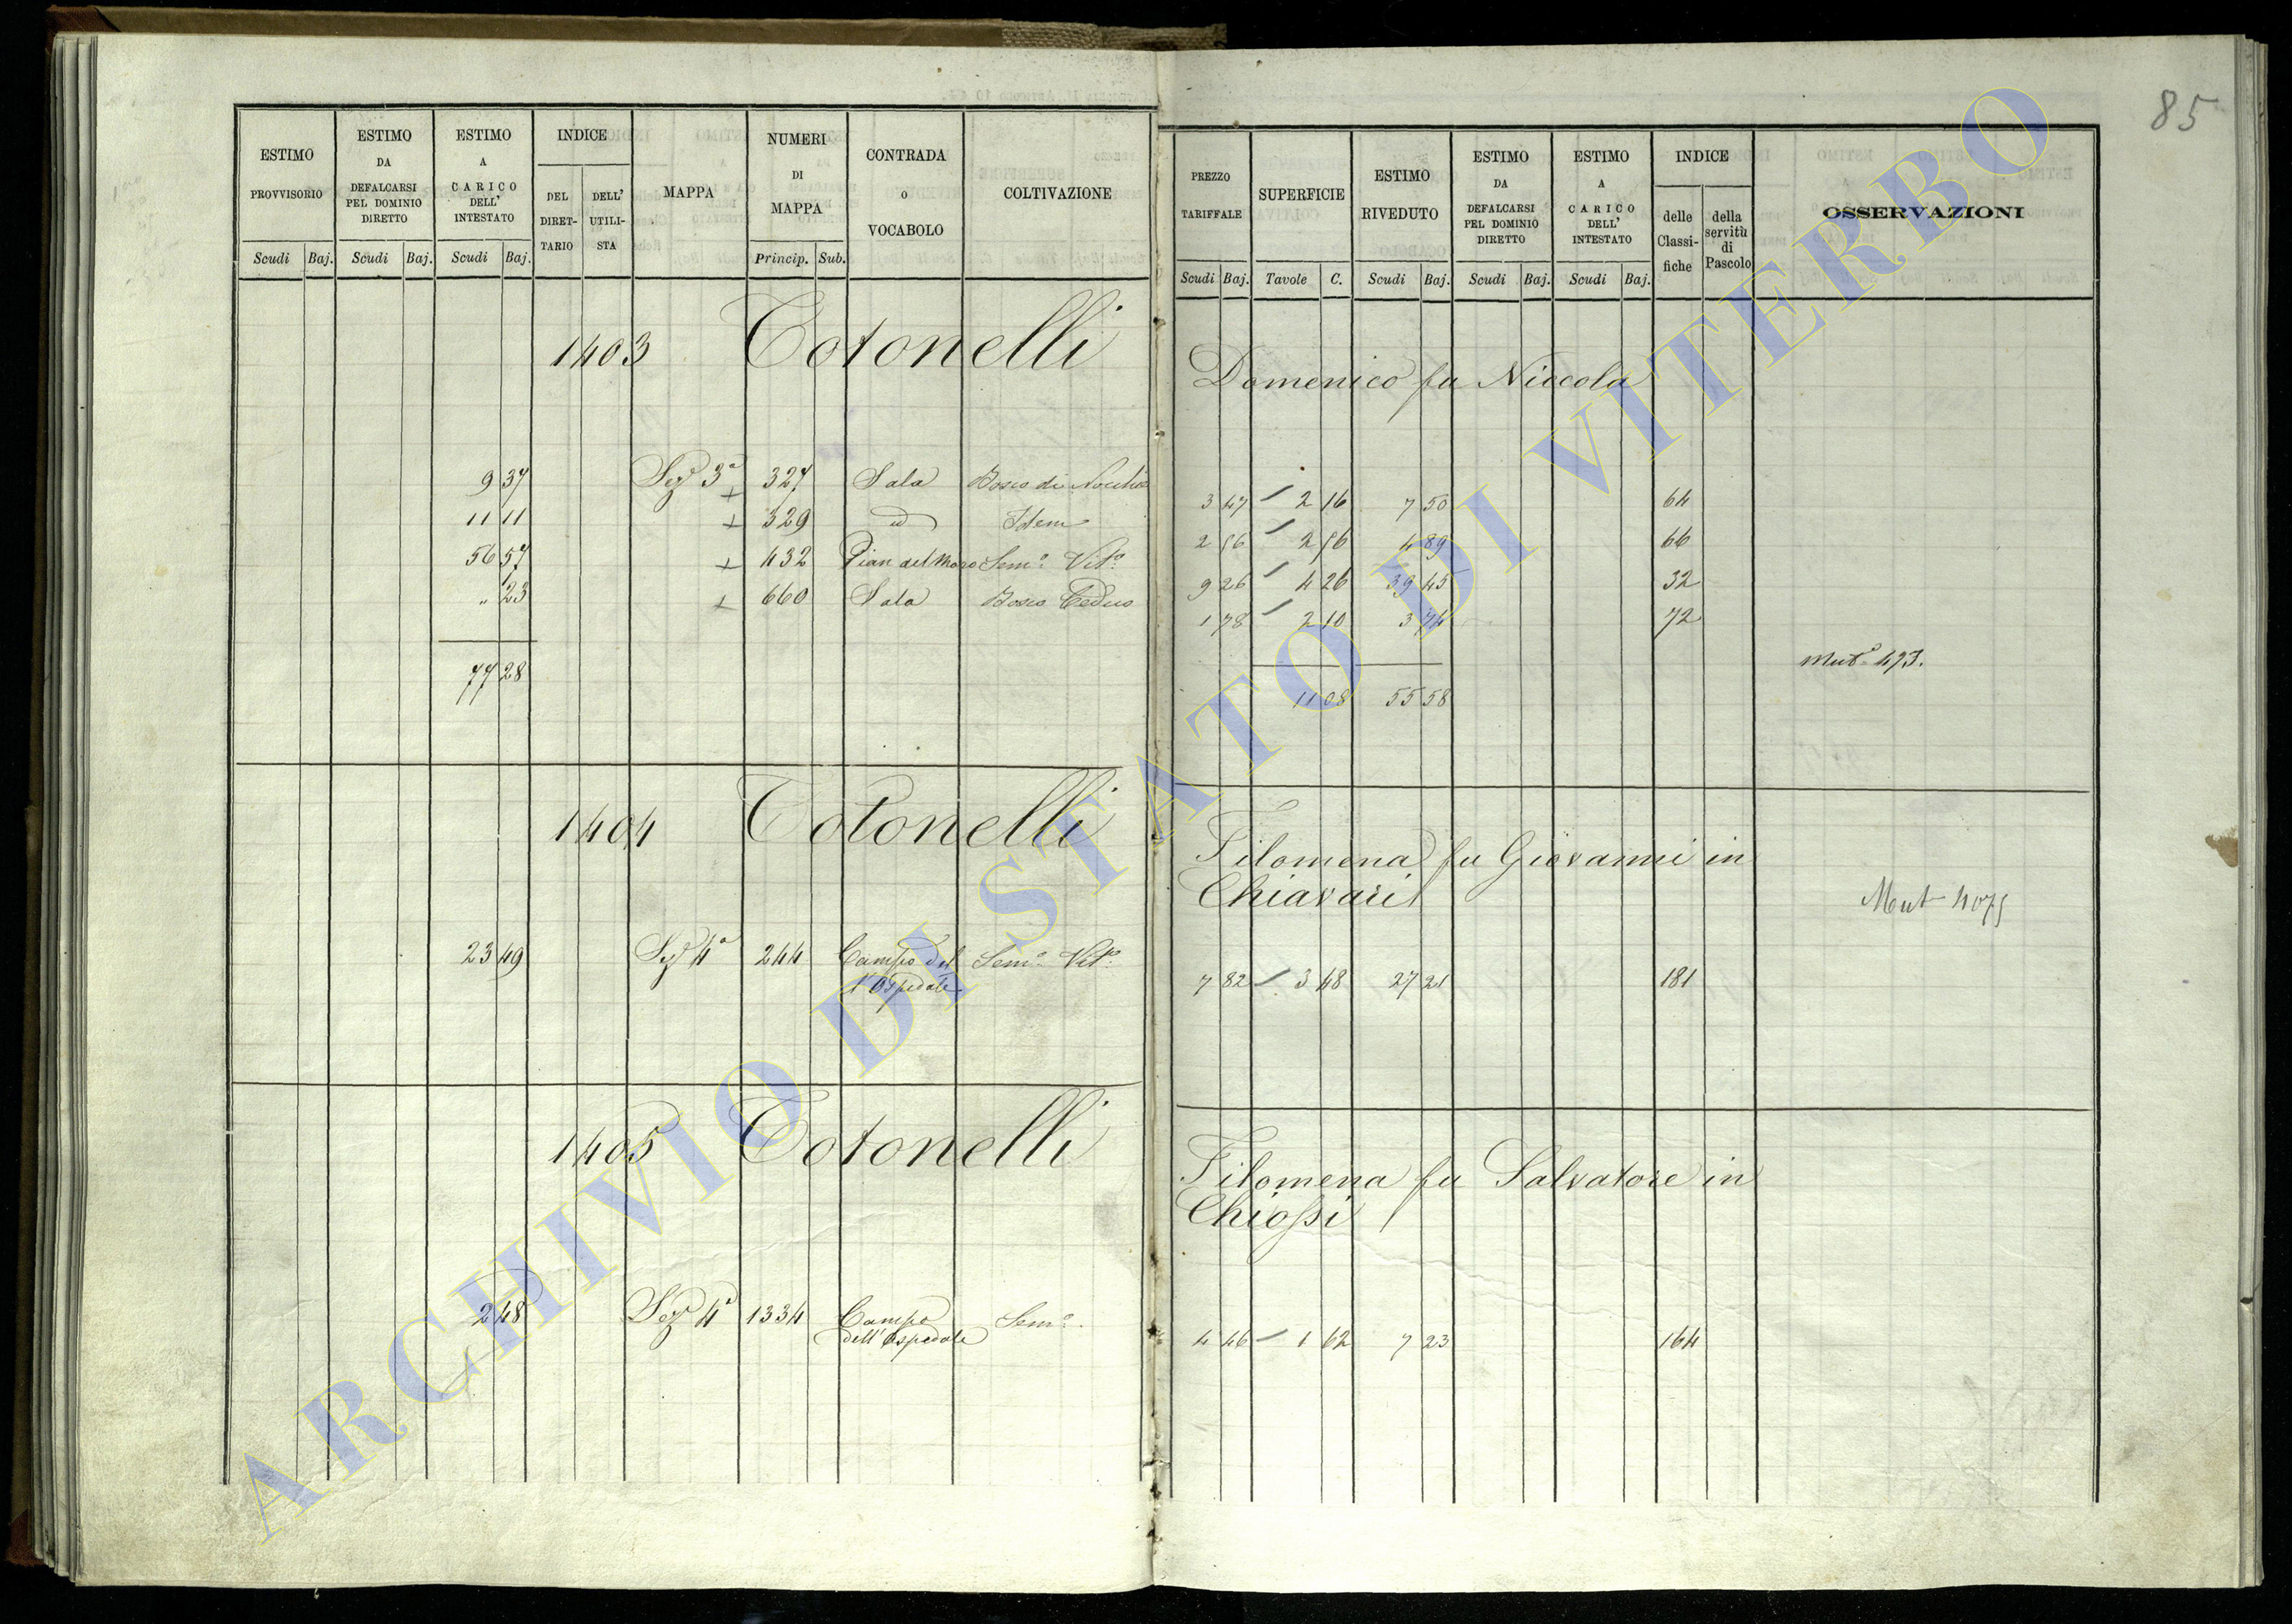 85
ESTIMO PROVVISORIO
ESTIMO DA DEFALCARSI PEL DOMINIO DIRETTO
ESTIMO A CARICO DELL' INTESTATO
INDICE
DEL DIRETTARIO
DELL' UTILISTA
MAPPA
NUMERI DI MAPPA
CONTRADA o VOCABOLO
COLTIVAZIONE
Scudi Baj. Scudi Baj. Scudi Baj. Princip. Sub.
PREZZO TARIFFALE
SUPERFICIE
ESTIMO RIVEDUTO
ESTIMO DA DEFALCARSI PEL DOMINIO DIRETTO
ESTIMO A CARICO DELL' INTESTATO
INDICE
delle Classifiche
della servitù di Pascolo
OSSERVAZIONI
Scudi Baj. Tavole C. Scudi Baj. Scudi Baj. Scudi Baj.
1403 Totonelli Domenico fu Niccola
9 37 Sez 3a 327 Sala Bosco di 3 47 2 16 7 50 64
11 11 329 id Idem 2 2 4 89 66
56 57 432 Pian del Moro Sem° Vit° 9 26 4 26 39 45 32
" 23 660 Sala Bosco Ceduo 1 78 2 10 3 74 72
Mut° 493.
77 28 11 08 55 58
1404 Totonelli Filomena fu Giovanni in
Chiavari
Mut 4075
23 49 Sez 4a 244 Campo del Sem° Vit° 7 82 3 48 27 21 181
l'Ospedale
1405 Totonelli Filomena fu Salvatore in
Chiossi
2 48 Sez 4a 1334 Campo Sem° 4 46 1 62 7 23 164
dell'Ospedale
ARCHIVIO DI STATO DI VITERBO